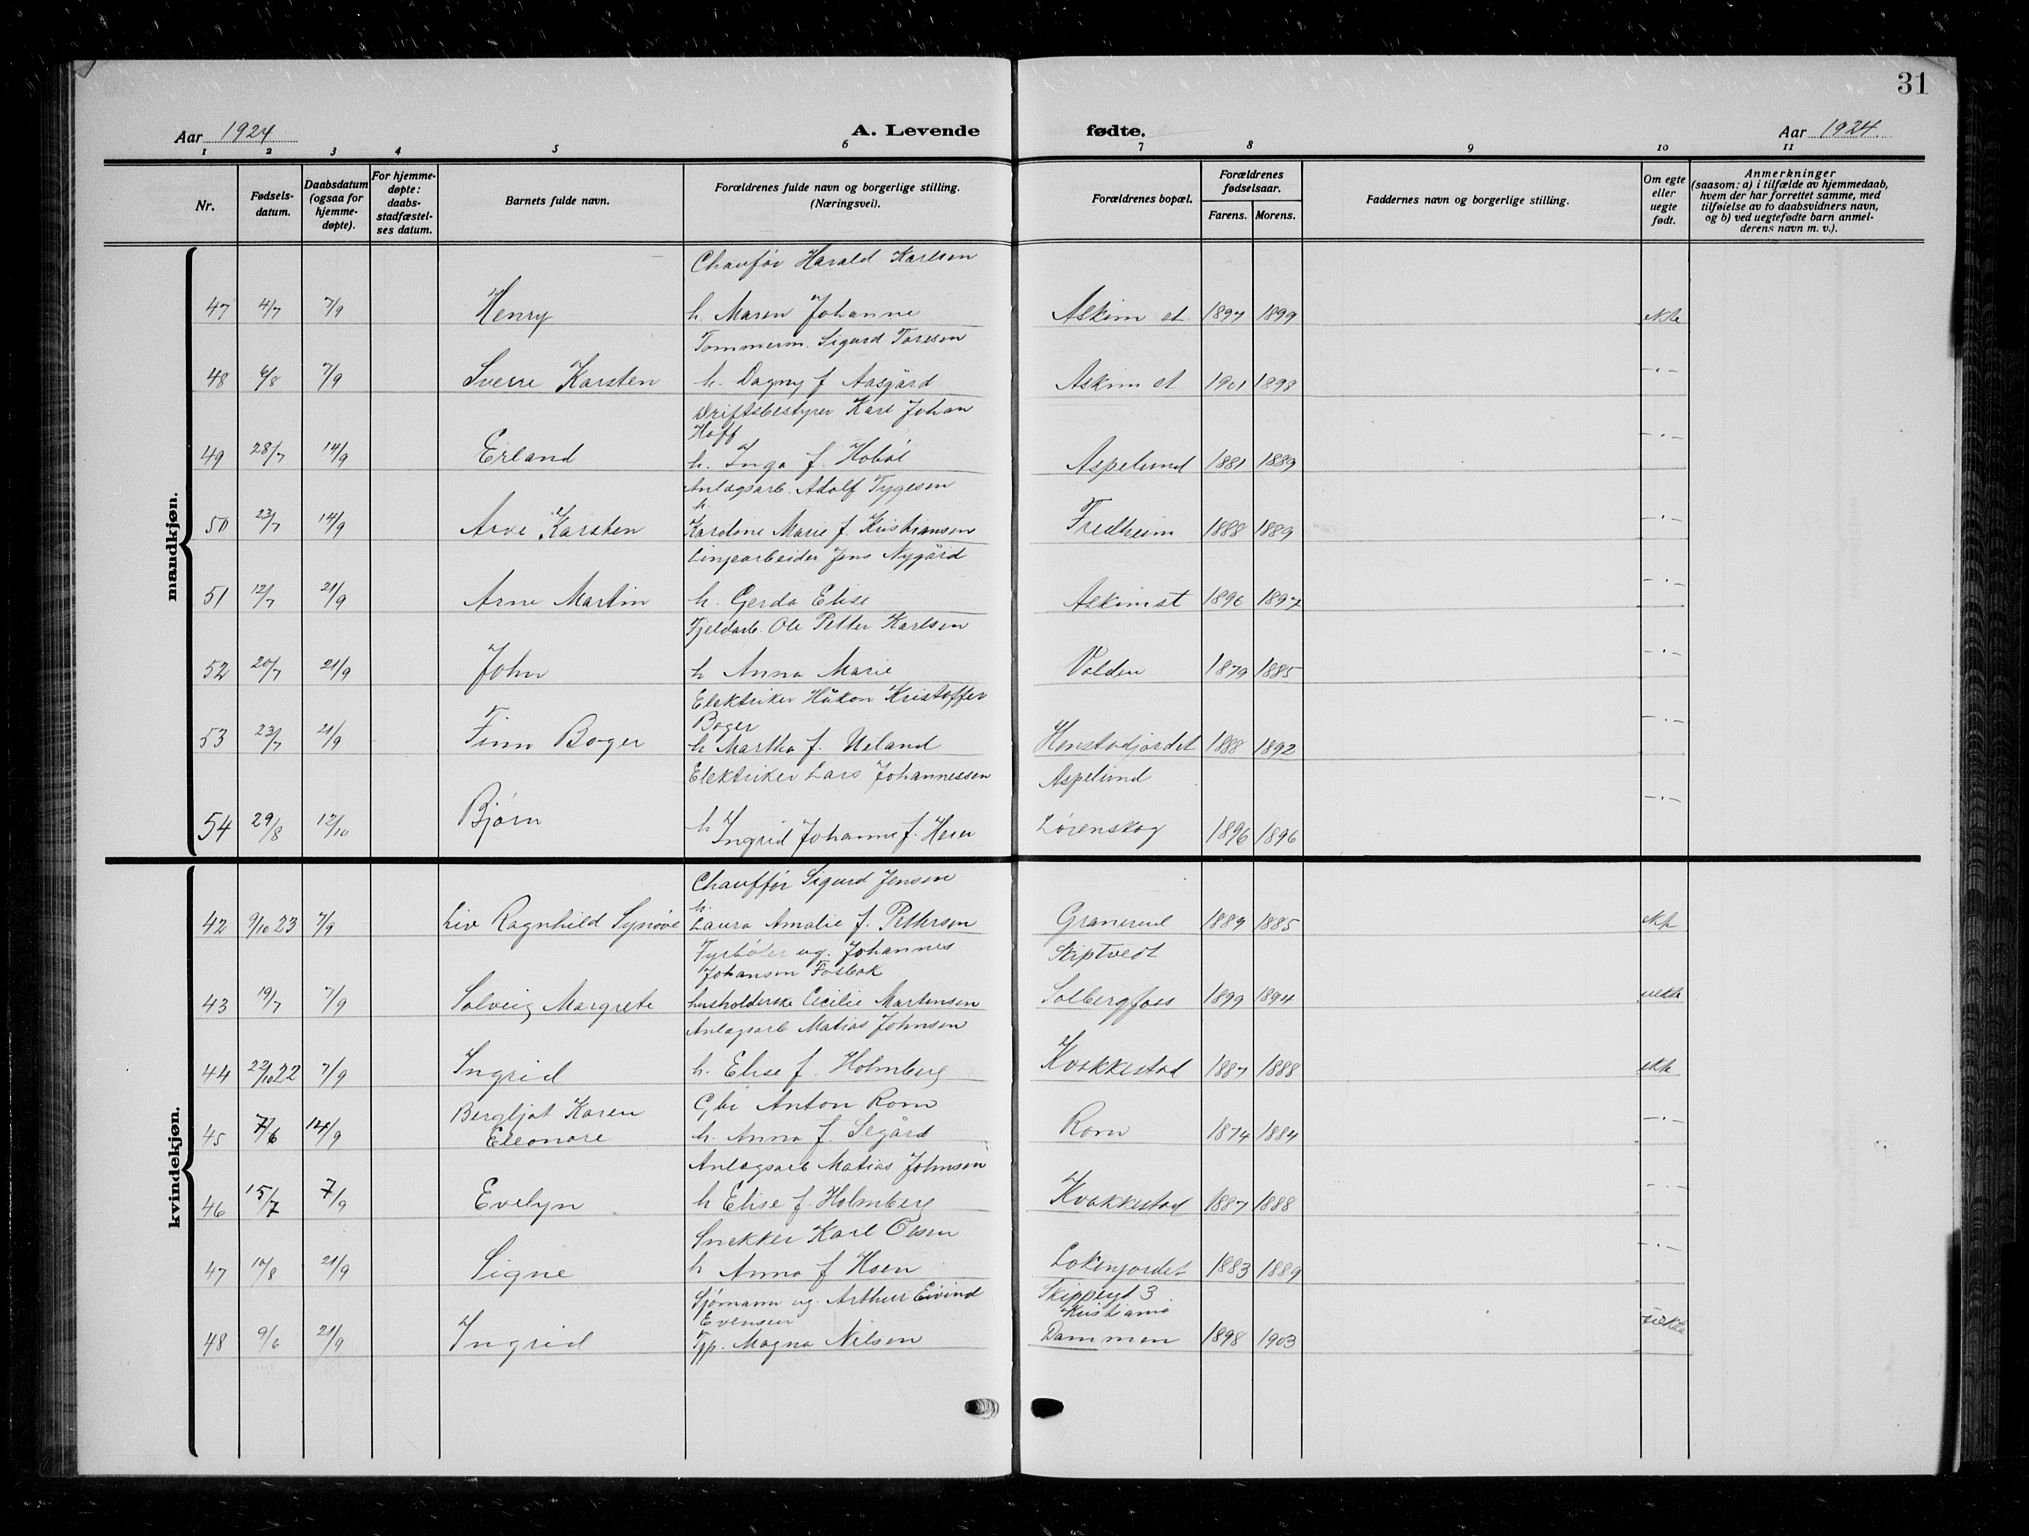 31
Aar 1924 A. Levende fødte. Aar 1924.
1 2 3 4 5 6 7 8 9 10 11
Nr.
Fødsels-
datum.
Daabsdatum
(ogsaa for
hjemme-
døpte).
For hjemme-
døpte:
daabs-
stadfæstel-
ses datum.
Barnets fulde navn.
Forældrenes fulde navn og borgerlige stilling.
(Næringsvei).
Forældrenes bopæl.
Forældrenes
fødselsaar.
Farens. Morens.
Faddernes navn og borgerlige stilling.
Om egte
eller
uegte
født.
Anmerkninger
(saasom: a) i tilfælde av hjemmedaab,
hvem der har forrettet samme, med
tilføielse av to daabsvidners navn,
og b) ved uegtefødte barn anmel-
derens navn m. v.).
mandkjøn.
Chaufør Harald Karlsen
47 4/7 7/9 Henry h. Maren Johanne Askim st 1897 1899 ekte
Tømmerm. Sigurd Toresen
48 6/8 7/9 Sverre Karsten h. Dagny f Aasgård Askim st 1901 1898 -"-
Driftsbestyrer Karl Johan
Hoff
49 28/7 14/9 Erland h. Inga f. Hobøl Aspelund 1881 1889 -"-
Anlægsarb. Adolf Tygesen
h.
50 23/7 14/9 Arve Karsten Karoline Marie f. Kristiansen Fredheim 1888 1889 -"-
Linjearbeider Jens Nygård
51 12/7 21/9 Arne Martin h. Gerda Elise Askim st 1896 1897 -"-
Fjeldarb. Ole Petter Karlsen
52 20/7 21/9 John h Anna Marie Volden 1879 1885 -"-
Elektriker Håkon Kristoffer
Boger
53 23/7 21/9 Finn Boger h Martha f. Ueland Henstadjordet 1888 1892 -"-
Elektriker Lars Johannessen Aspelund
54 29/8 12/10 Bjørn h Ingrid Johanne f. Heer Lørenskog 1896 1896 -"-
kvindekjøn.
Chauffør Sigurd Jensen
h.
42 9/10 23 7/9 Liv Ragnhild Synøve Laura Amalie f. Pettersen Granerud 1889 1885 ekte
Fyrbøter ug. Johannes Skiptvedt
Johansen Fosbak
43 19/7 7/9 Solveig Margrete husholderske Cicilie Martinsen Solbergfoss 1899 1894 uekte
Anlægsarb Matias Johnsen
44 22/10 22 7/9 Ingrid h. Elise f. Holmberg Kvakkestad 1887 1888 ekte
Bergljot Karen Gbr Anton Rom
45 7/6 14/9 Eleonore h. Anna f. Segård Rom 1874 1884 -"-
Anlægsarb Matias Johnsen
46 15/7 7/9 Evelyn h Elise f. Holmberg Kvakkestad 1887 1888 -"-
Snekker Karl Olsen
47 10/8 21/9 Signe h Anna f Hoen Lokenjordet 1883 1889 -"-
Sjømann ug. Arthur Eivind Skippergt 3
Evensen Kristiania
48 9/6 21/9 Ingrid Tjp. Magna Nilsen Dammen 1898 1903 uekte